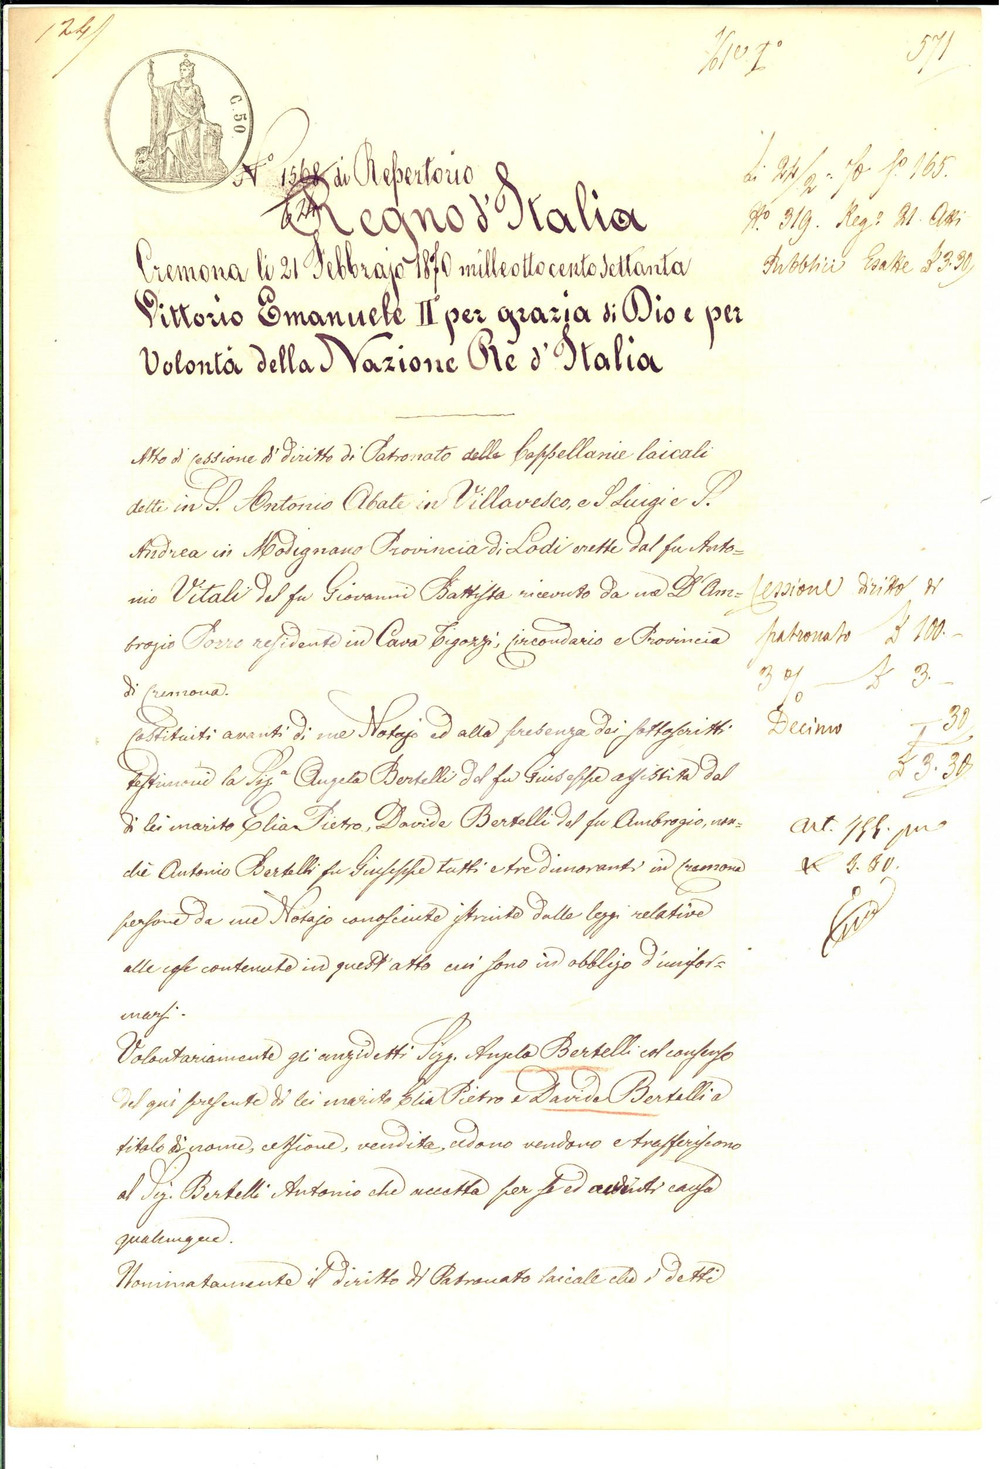 124/
571
C. 50.
N.° 1568 di Repertorio
624
Regno d'Italia
Cremona li 21 Febbrajo 1870 milleottocentosettanta
Vittorio Emanuele II per grazia di Dio e per
Volontà della Nazione Re d'Italia
Li 24/2 = 70 f.° 165.
N.° 319. Reg.° 21. Atti
Pubblici Esatte £ 3.30
Atto di cessione di diritto di Patronato delle Cappellanie laicali
dette in S. Antonio Abate in Villavesco, e S. Luigi e S.
Andrea in Modignano Provincia di Lodi erette dal fu Anto=
nio Vitali del fu Giovanni Battista ricevuto da me Dr Am=
brogio Porro residente in Cava Tigozzi, Circondario e Provincia
di Cremona.
Cessione diritto di
patronato £ 100.-
3 % £ 3.-
Decimo 30
£ 3.30
Art. 155.
3.30.
Costituiti avanti di me Notajo ed alla presenza dei sottoscritti
testimoni la Sig.a Angela Bertelli del fu Giuseppe assistita dal
di lei marito Elia Pietro, Davide Bertelli del fu Ambrogio, non=
chè Antonio Bertelli fu Giuseppe tutti e tre dimoranti in Cremona
persone da me Notajo conosciute istruite delle leggi relative
alle cose contenute in quest'atto cui sono in obbligo d'unifor=
marsi.
Volontariamente gli anzidetti Sigg. Angela Bertelli col consenso
del qui presente di lei marito Elia Pietro e Davide Bertelli a
titolo di nome, cessione, vendita, cedono vendono e trasferiscono
al Sig. Bertelli Antonio che accetta per se ed aventi causa
qualunque.
Nominatamente il diritto di Patronato laicale che i detti